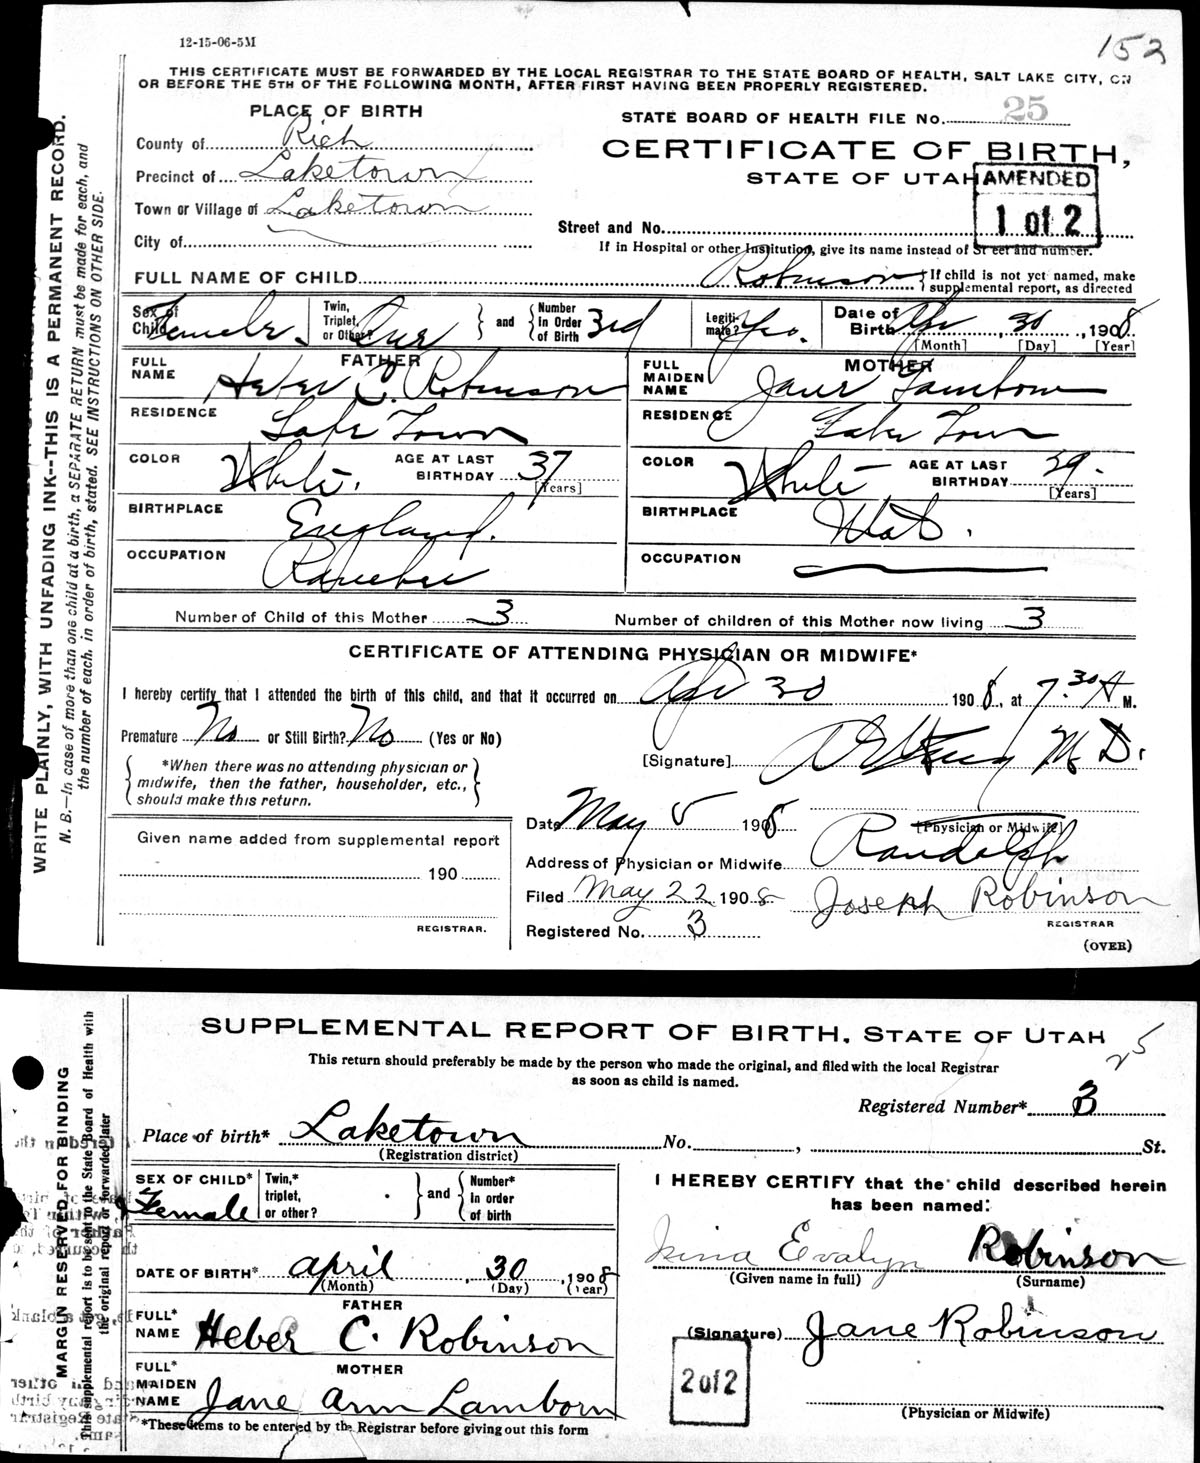 12-15-06-5M
152
THIS CERTIFICATE MUST BE FORWARDED BY THE LOCAL REGISTRAR TO THE STATE BOARD OF HEALTH, SALT LAKE CITY, ON
OR BEFORE THE 5TH OF THE FOLLOWING MONTH, AFTER FIRST HAVING BEEN PROPERLY REGISTERED.
PLACE OF BIRTH
County of Rich
Precinct of Laketown
Town or Village of Laketown
City of
STATE BOARD OF HEALTH FILE No. 25
CERTIFICATE OF BIRTH,
STATE OF UTAH
AMENDED
1 of 2
Street and No.
If in Hospital or other Institution, give its name instead of Street and number.
FULL NAME OF CHILD Robinson { If child is not yet named, make
supplemental report, as directed
Sex of Child Female. Twin, Triplet, or Other? One } and { Number in Order of Birth 3rd Legitimate? Yes. Date of Birth Apr 30, 1908
[Month] [Day] [Year]
FATHER
FULL NAME Heber C. Robinson
RESIDENCE Lake Town
COLOR White. AGE AT LAST BIRTHDAY 37
[Years]
BIRTHPLACE England.
OCCUPATION Rancher
MOTHER
FULL MAIDEN NAME Jane Lamborn
RESIDENCE Lake Town
COLOR White AGE AT LAST BIRTHDAY 39.
[Years]
BIRTHPLACE Utah.
OCCUPATION
Number of Child of this Mother 3 Number of children of this Mother now living 3
CERTIFICATE OF ATTENDING PHYSICIAN OR MIDWIFE*
I hereby certify that I attended the birth of this child, and that it occurred on Apr 30 1908, at 7.30 A M.
Premature No or Still Birth? No (Yes or No)
*When there was no attending physician or
midwife, then the father, householder, etc.,
should make this return.
[Signature] M D.
[Physician or Midwife]
Given name added from supplemental report
190
REGISTRAR.
Date May 5 1908
Address of Physician or Midwife Randolph
Filed May 22 1908 Joseph Robinson
REGISTRAR
Registered No. 3
(OVER)
WRITE PLAINLY, WITH UNFADING INK--THIS IS A PERMANENT RECORD.
N. B.—In case of more than one child at a birth, a SEPARATE RETURN must be made for each, and
the number of each, in order of birth, stated. SEE INSTRUCTIONS ON OTHER SIDE.
SUPPLEMENTAL REPORT OF BIRTH, STATE OF UTAH
25
This return should preferably be made by the person who made the original, and filed with the local Registrar
as soon as child is named.
Registered Number* 3
Place of birth* Laketown No. , St.
(Registration district)
SEX OF CHILD* Female Twin,* triplet, or other? } and { Number* in order of birth
DATE OF BIRTH* April 30, 1908
(Month) (Day) (Year)
FATHER
FULL* NAME Heber C. Robinson
MOTHER
FULL* MAIDEN NAME Jane Ann Lamborn
*These items to be entered by the Registrar before giving out this form
I HEREBY CERTIFY that the child described herein
has been named:
Evalyn Robinson
(Given name in full) (Surname)
(Signature) Jane Robinson
2 of 2
(Physician or Midwife)
MARGIN RESERVED FOR BINDING
This supplemental report is to be sent to the State Board of Health with
the original report or forwarded later